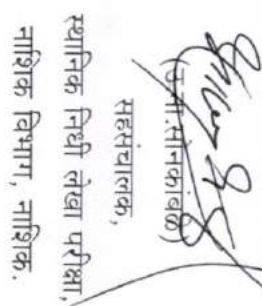 (उ.भा.सोनकांबळे)
सहसंचालक,
स्थानिक निधी लेखा परीक्षा,
नाशिक विभाग, नाशिक.